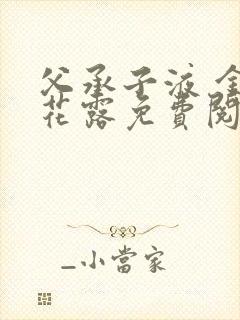 父承子液 金
花露免費閱
_小當家